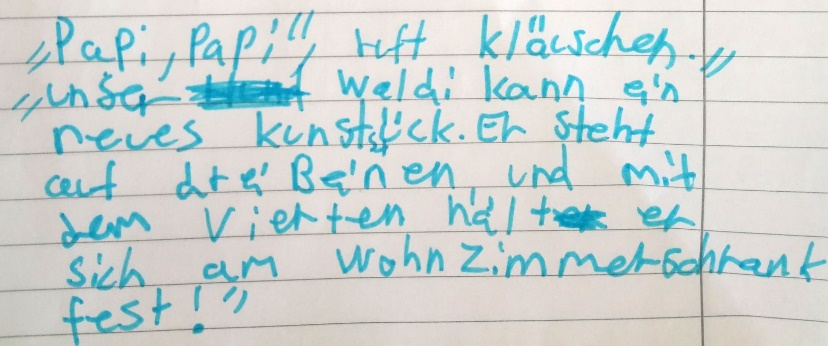 „Papi, Papi", ruft kläuschen. „
„unser Waldi kann ein
neues kunststück. Er steht
auf drei Beinen und mit
dem Vierten hält er
sich am wohnzimmerschrank
fest!"